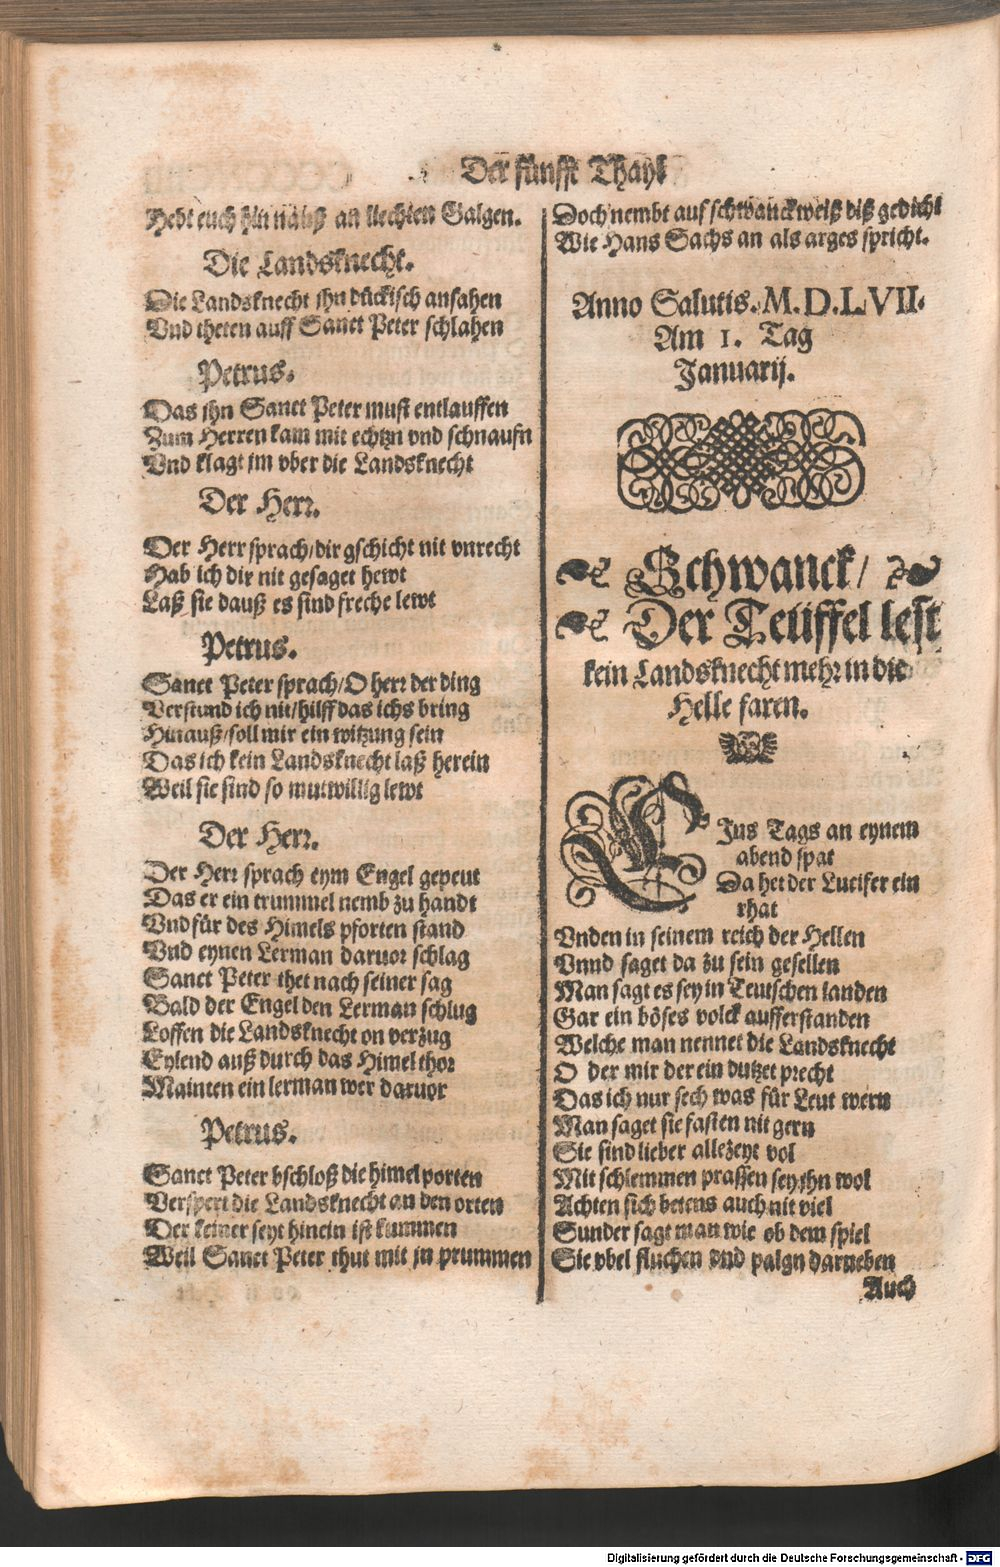 Der fünfft Thayl
Hebt euch hin nauß an liechten Galgen.
Die Landsknecht.
Die Landsknecht ihn dückisch ansahen
Vnd theten auff Sanct Peter schlahen
Petrus.
Das ihn Sanct Peter must entlauffen
Zum Herren kam mit echtzn vnd schnaufn
Vnd klagt im vber die Landsknecht
Der Herr.
Der Herr sprach/dir gschicht nit vnrecht
Hab ich dir nit gesaget hewt
Laß sie dauß es sind freche lewt
Petrus.
Sanct Peter sprach/O herr der ding
Verstund ich nit/hilff das ichs bring
Hinauß/soll mir ein witzung sein
Das ich kein Landsknecht laß herein
Weil sie sind so mutwillig lewt
Der Herr.
Der Herr sprach eym Engel gepeut
Das er ein trummel nemb zu handt
Vnd für des Himels pforten stand
Vnd eynen Lerman daruor schlag
Sanct Peter thet nach seiner sag
Bald der Engel den Lerman schlug
Loffen die Landsknecht on verzug
Eylend auß durch das Himel thor
Mainten ein lerman wer daruor
Petrus.
Sanct Peter bschloß die himel porten
Verspert die Landsknecht an den orten
Der keiner seyt hinein ist kummen
Weil Sanct Peter thut mit in prummen
Doch nembt auf schwanckweiß diß gedicht
Wie Hans Sachs an als arges spricht.
Anno Salutis. M. D. L VII.
Am 1. Tag
Januarij.
Schwanck/
Der Teüffel lest
kein Landsknecht mehr in die
Helle faren.
EJns Tags an eynem
abend spat
Da het der Lucifer ein
rhat
Vnden in seinem reich der Hellen
Vnnd saget da zu sein gesellen
Man sagt es sey in Teutschen landen
Gar ein böses volck aufferstanden
Welche man nennet die Landsknecht
O der mir der ein dutzet precht
Das ich nur sech was für Leut wern
Man saget sie fasten nit gern
Sie sind lieber allezeyt vol
Mit schlemmen prassen sey ihn wol
Achten sich betens auch nit viel
Sunder sagt man wie ob dem spiel
Sie vbel fluchen vnd palgn darneben
Auch
Digitalisierung gefördert durch die Deutsche Forschungsgemeinschaft - DFG